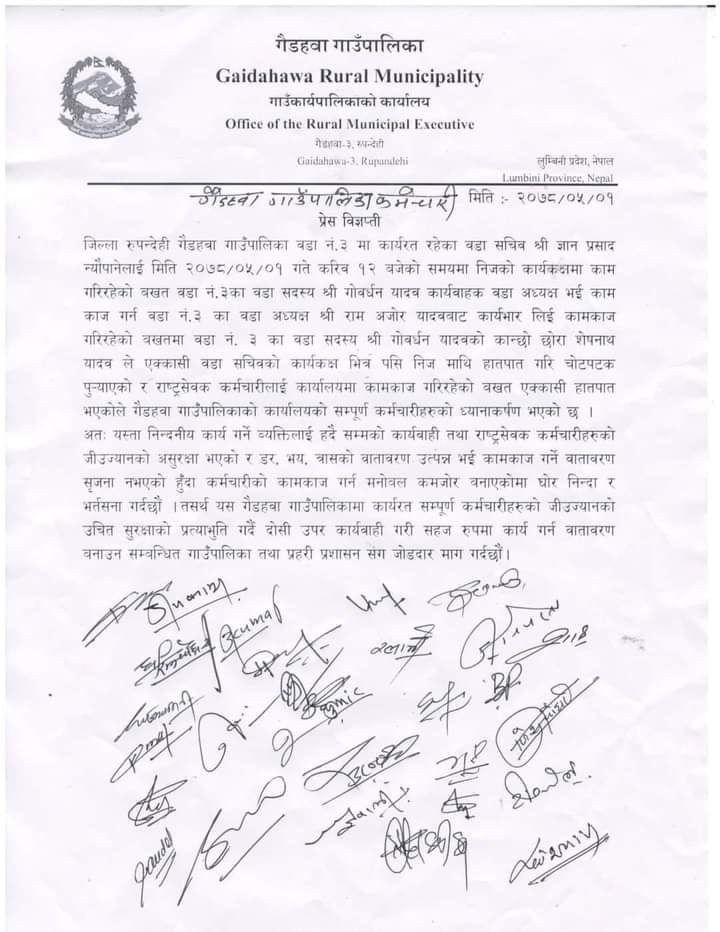 गैडहवा गाउँपालिका
Gaidahawa Rural Municipality
गाउँकार्यपालिकाको कार्यालय
Office of the Rural Municipal Executive
गैडहवा-३, रुपन्देही
Gaidahawa-3, Rupandehi
लुम्बिनी प्रदेश, नेपाल
Lumbini Province, Nepal
गैडहवा गाउँपालिका कर्मचारी मिति :- २०७८/०५/०१
प्रेस विज्ञप्ती
जिल्ला रुपन्देही गैडहवा गाउँपालिका वडा नं.३ मा कार्यरत रहेका वडा सचिव श्री ज्ञान प्रसाद
न्यौपानेलाई मिति २०७८/०५/०१ गते करिव १२ बजेको समयमा निजको कार्यकक्षमा काम
गरिरहेको बखत वडा नं.३का वडा सदस्य श्री गोवर्धन यादव कार्यवाहक वडा अध्यक्ष भई काम
काज गर्न वडा नं.३ का वडा अध्यक्ष श्री राम अजोर यादवबाट कार्यभार लिई कामकाज
गरिरहेको बखतमा वडा नं. ३ का वडा सदस्य श्री गोवर्धन यादवको कान्छो छोरा शेषनाथ
यादव ले एक्कासी वडा सचिवको कार्यकक्ष भित्र पसि निज माथि हातपात गरि चोटपटक
पुऱ्याएको र राष्ट्रसेवक कर्मचारीलाई कार्यालयमा कामकाज गरिरहेको बखत एक्कासी हातपात
भएकोले गैडहवा गाउँपालिकाको कार्यालयको सम्पूर्ण कर्मचारीहरुको ध्यानाकर्षण भएको छ ।
अतः यस्ता निन्दनीय कार्य गर्ने व्यक्तिलाई हदै सम्मको कार्यवाही तथा राष्ट्रसेवक कर्मचारीहरुको
जीउज्यानको असुरक्षा भएको र डर, भय, त्रासको वातावरण उत्पन्न भई कामकाज गर्ने वातावरण
सृजना नभएको हुँदा कर्मचारीको कामकाज गर्न मनोवल कमजोर बनाएकोमा घोर निन्दा र
भर्तसना गर्दछौं ।तसर्थ यस गैडहवा गाउँपालिकामा कार्यरत सम्पूर्ण कर्मचारीहरुको जीउज्यानको
उचित सुरक्षाको प्रत्याभुति गर्दै दोसी उपर कार्यवाही गरी सहज रुपमा कार्य गर्न वातावरण
बनाउन सम्बन्धित गाउँपालिका तथा प्रहरी प्रशासन संग जोडदार माग गर्दछौं।